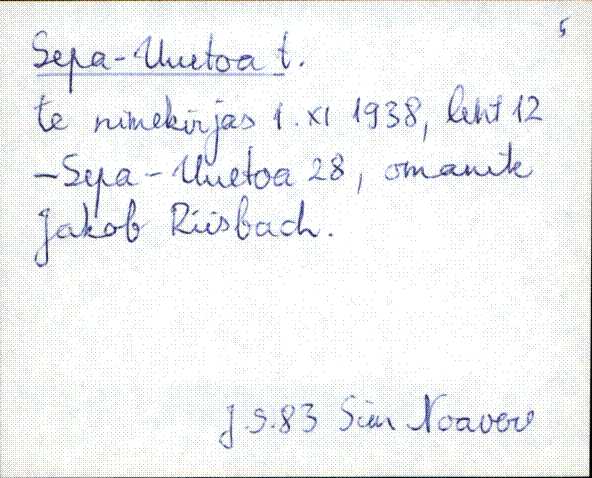 5
Sepa-Uuetoa t.
te nimekirjas 1. XI 1938, leht 12
– Sepa-Uuetoa 28, omanik
Jakob Riisbach.
J.S.83